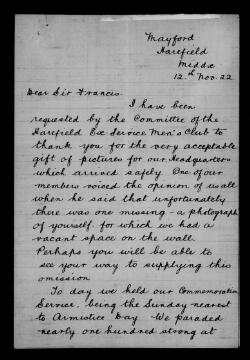 Mayford
Harefield
Middx
12.th Nov. 22
Dear Sir Francis.
I have been
requested by the Committee of the
Harefield Ex Service Men's Club to
thank you for the very acceptable
gift of pictures for our Headquarters
which arrived safely. One of our
members voiced the opinion of us all
when he said that unfortunately
there was one missing - a photograph
of yourself, for which we had a
vacant space on the wall.
Perhaps you will be able to
see your way to supplying this
omission
To day we held our Commemoration
Service, being the Sunday nearest
to Armistice Day. We paraded
nearly one hundred strong at